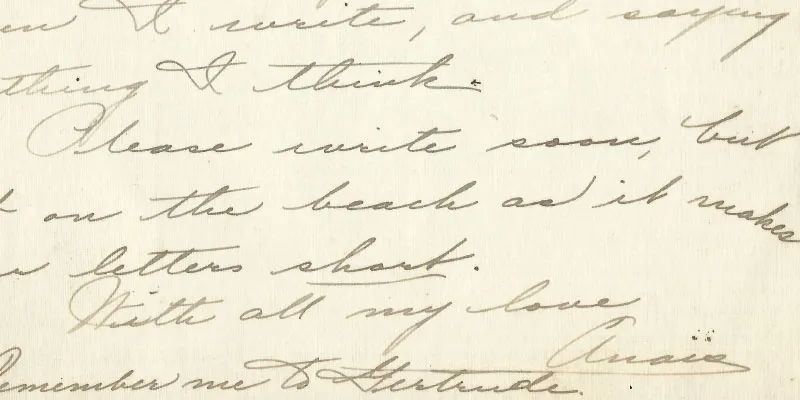 I write, and saying
thing I think.
Please write soon, but
on the beach as it makes
letters short.
With all my love
Anaïs
Remember me to Gertrude.